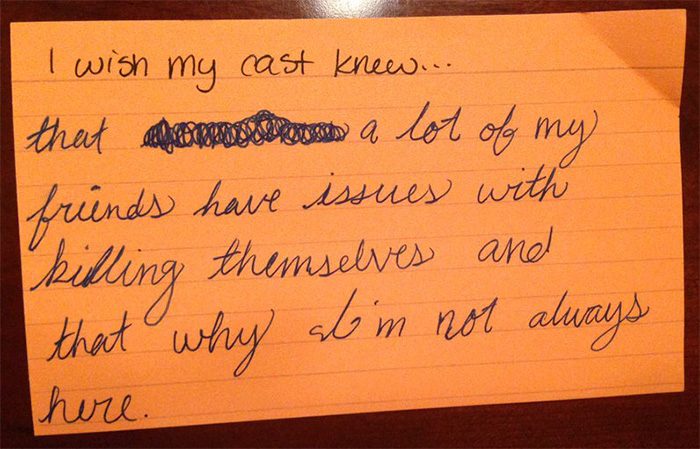 I wish my cast knew...
that a lot of my
friends have issues with
killing themselves and
that why I'm not always
here.